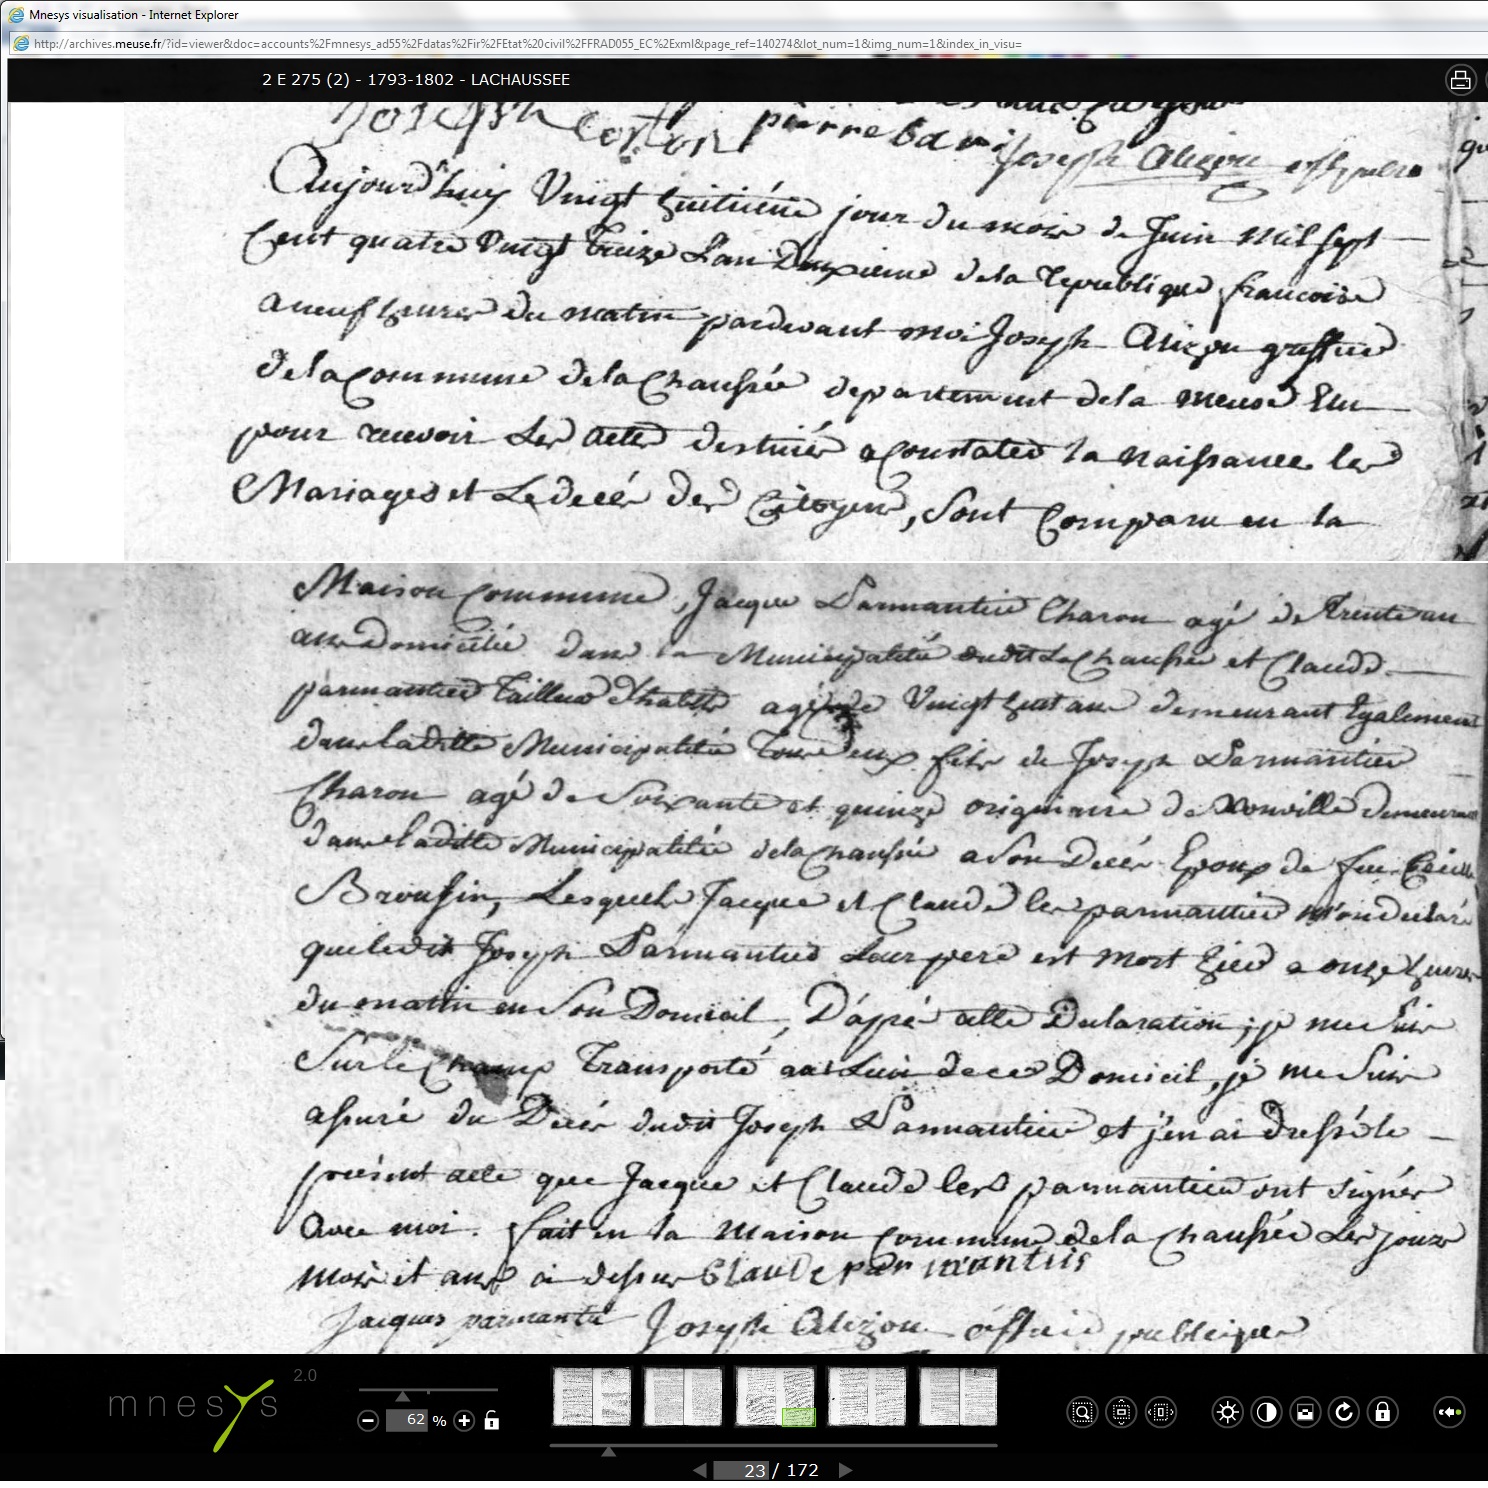 Mnesys visualisation - Internet Explorer
http://archives.meuse.fr/?id=viewer&doc=accounts%2Fmnesys_ad55%2Fdatas%2Fir%2FEtat%20civil%2FFRAD055_EC%2Exml&page_ref=140274&lot_num=1&img_num=1&index_in_visu=
2 E 275 (2) - 1793-1802 - LACHAUSSEE
Joseph pierre
Joseph Alizon
Aujourd'huy Vingt huitiéme jour du mois de Juin Mil sept
Cent quatre Vingt treize L'an Deuxieme de la Republique francoise
a neuf heures du matin pardevant moi Joseph Alizon greffier
de la Commune de la Chaussée departement de la meuse Elu
pour recevoir Les actes destinés a Constater la naissance les
Mariages et Le decés des Citoyens, sont Comparu en la
Maison Commune, Jacque Parmantier Charon agé de trente un
ans Domicilié dans la Municipalité dudit La Chaussée et Claude
parmantier tailleur d'habits agé de Vingt huit ans demeurant Egalement
dans laditte Municipalité tous deux fils de Joseph Parmantier
Charon agé de Soixante et quinze originaire de demeurant
dans laditte Municipalité de la Chaussée a Son Decés Epoux de feu Cecille
Broussin, Lesquels Jacque et Claude les parmantier m'on declaré
que ledit Joseph Parmantier Leur pere est mort hier a onze heures
du matin en Son Domicil, D'apré cette Declaration, je me suis
Sur le Champ Transporté au Lieu de ce Domicil, je me suis
assuré du Decés dudit Joseph Parmantier et j'en ai dressé le
présent acte que Jacque et Claude les parmantier ont signés
avec moi. fait en la Maison commune de la Chaussée Les jours
mois et ans ci dessus Claude parmantier
Jacques parmantie Joseph Alizon officie publique
mnesys 2.0
62 %
23 / 172